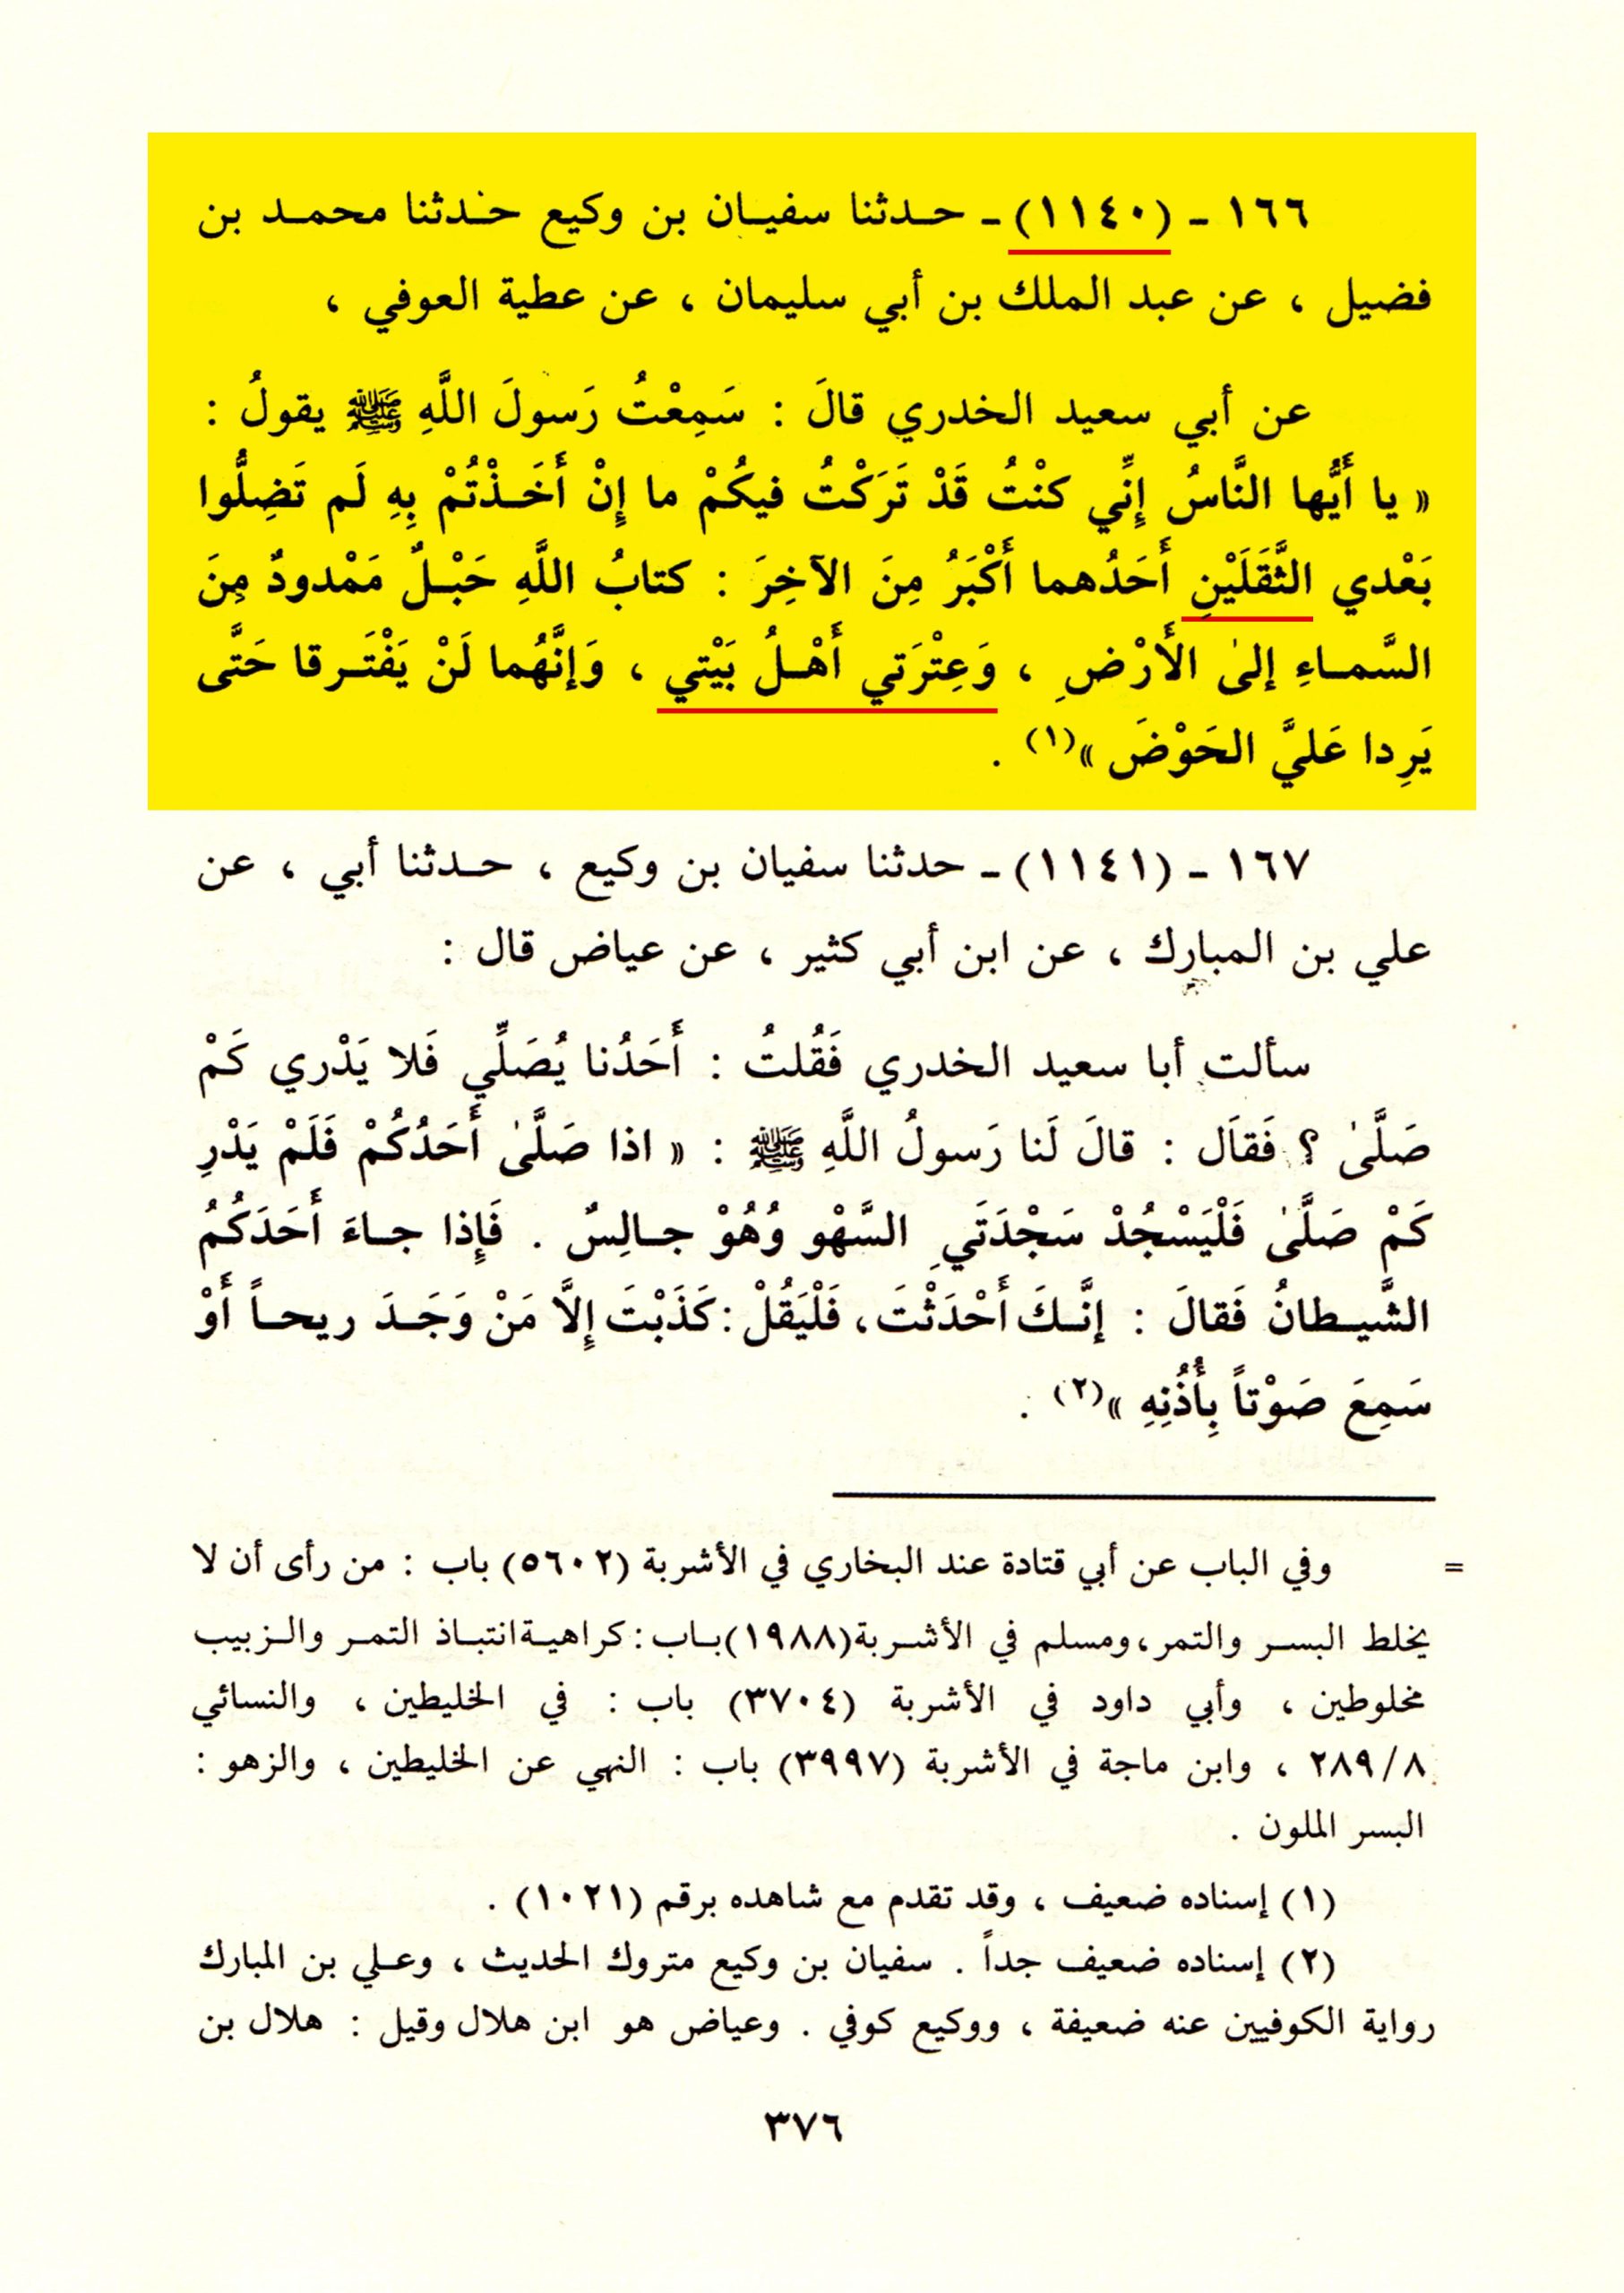 ١٦٦ - (١١٤٠) - حـدثنا سفيـان بن وكيع حدثنا محمـد بن
فضيل ، عن عبد الملك بن أبي سليمان ، عن عطية العوفي ،
عن أبي سعيد الخدري قالَ : سَمِعْتُ رَسولَ اللَّهِ ﷺ يقولُ :
« يا أَيُّها النَّاسُ إِنِّي كنْتُ قَدْ تَرَكْتُ فيكُمْ ما إِنْ أَخَـذْتُمْ بِهِ لَم تَضِلُّوا
بَعْدي الثَّقَلَيْنِ أَحَدُهما أَكْبَرُ مِنَ الآخِرَ : كتابُ اللَّهِ حَبْـلٌ مَمْدودٌ مِنَ
السَّمـاءِ إلىٰ الأَرْضِ ، وَعِتْرَتي أَهْـلُ بَيْتي ، وَإنَّهُما لَنْ يَفْتَـرقا حَتَّى
يَرِدا عَليَّ الحَوْضَ »(١) .
١٦٧ - (١١٤١) - حدثنا سفيان بن وكيع ، حـدثنا أبي ، عن
علي بن المبارك ، عن ابن أبي كثير ، عن عياض قال :
سألت أبا سعيد الخدري فَقُلتُ : أَحَدُنا يُصَلِّي فَلا يَدْري كَمْ
صَلَّىٰ ؟ فَقاَل : قالَ لَنا رَسولُ اللَّهِ ﷺ : « اذا صَلَّىٰ أَحَدُكُمْ فَلَمْ يَدْرِ
كَمْ صَلَّىٰ فَلْيَسْجُدْ سَجْدَتَيِ السَّهْو وُهُوْ جـالِسٌ . فَإِذا جـاءَ أَحَدَكُمُ
الشَّيـطانُ فَقالَ : إنَّـكَ أَحْدَثْتَ، فَلْيَقُلْ : كَذَبْتَ إِلاَّ مَنْ وَجَـدَ ريحـاً أَوْ
سَمِعَ صَوْتاً بِأُذُنِهِ »(٢) .
= وفي الباب عن أبي قتادة عند البخاري في الأشربة (٥٦٠٢) باب : من رأى أن لا
يخلط البسـر والتمر، ومسلم في الأشـربة (١٩٨٨) بـاب : كراهيـة انتبـاذ التمـر والـزبيب
مخلوطين ، وأبي داود في الأشربة (٣٧٠٤) باب : في الخليطين ، والنسائي
٢٨٩/٨ ، وابن ماجة في الأشربة (٣٩٩٧) باب : النهي عن الخليطين ، والزهو :
البسر الملون .
(١) إسناده ضعيف ، وقد تقدم مع شاهده برقم (١٠٢١) .
(٢) إسناده ضعيف جداً . سفيان بن وكيع متروك الحديث ، وعـلي بن المبارك
رواية الكوفيين عنه ضعيفة ، ووكيع كوفي . وعياض هو ابن هلال وقيل : هلال بن
٣٧٦